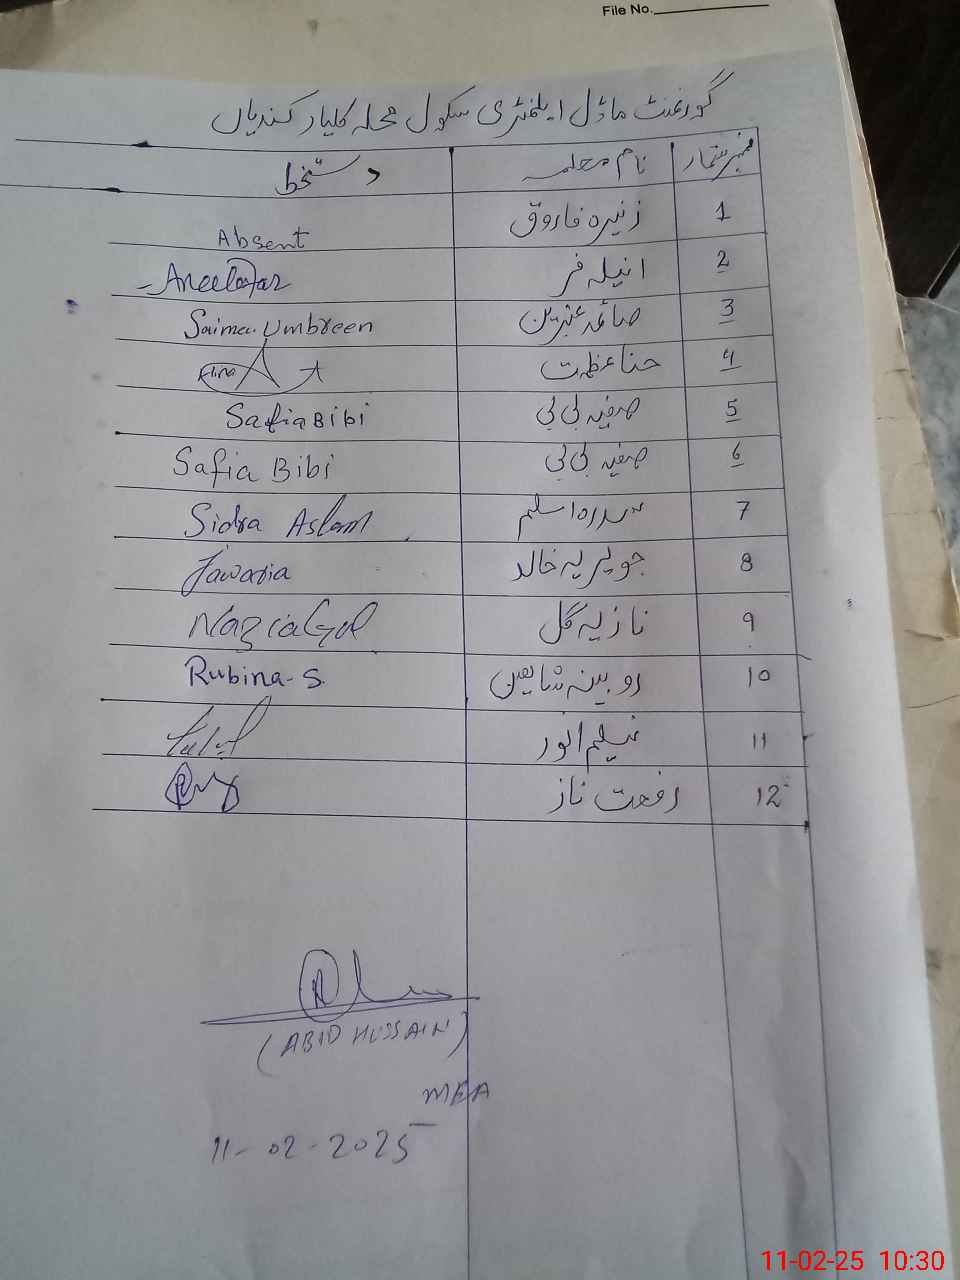 File No.
گورنمنٹ ماڈل ایلمنٹری سکول محلہ کلیار کندیاں
نمبر شمار نام معلمہ دستخط
1 زنیرہ فاروق Absent
2 انیلہ قمر
3 صائمہ عنبرین Saima Umbreen
4 حنا عظمت Hina
5 صفیہ بی بی Safia Bibi
6 صفیہ بی بی Safia Bibi
7 سدرہ اسلم Sidra Aslam
8 جویریہ خالد Jawaria
9 نازیہ گل Nazia Gul
10 روبینہ شاہین Rubina-S.
11 نیلم انور
12 رفعت ناز
(ABID HUSSAIN)
MEA
11-02-2025
11-02-25 10:30